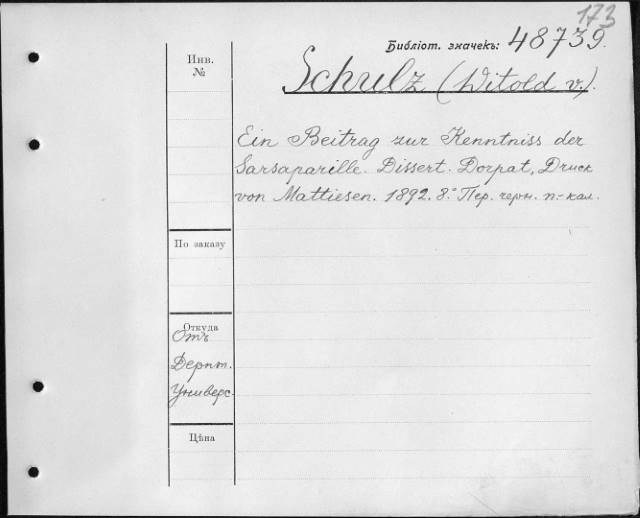 173
Библіот. значекъ: 48739.
Инв.
№
Schulz (Witold v.).
Ein Beitrag zur Kenntniss der
Sarsaparille. Dissert. Dorpat, Druck
von Mattiesen. 1892. 8.° Пер. черн. п.-кал.
По заказу
Откуда
Отъ
Дерпт.
Универс.
Цѣна